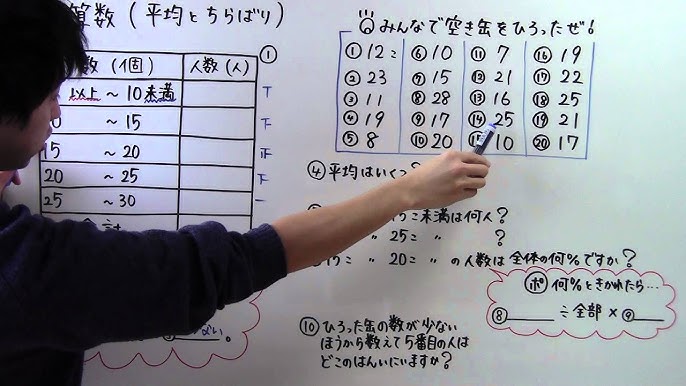 算数(平均とちらばり)
数(個) 人数(人)
以上 ~ 10未満
~ 15
15 ~ 20
20 ~ 25
25 ~ 30
①
みんなで空き缶をひろったぜ!
①12こ ⑥10 ⑪7 ⑯19
②23 ⑦15 ⑫21 ⑰22
③11 ⑧28 ⑬16 ⑱25
④19 ⑨17 ⑭25 ⑲21
⑤8 ⑩20 ⑮10 ⑳17
④平均はいくつ
15こ未満は何人?
〃 25こ 〃 ?
15こ 〃 20こ 〃 の人数は全体の何%ですか?
ポ 何%ときかれたら…
⑧ ÷全部×⑨
⑩ひろった缶の数が少ない
ほうから数えて5番目の人は
どこのはんいにいますか?